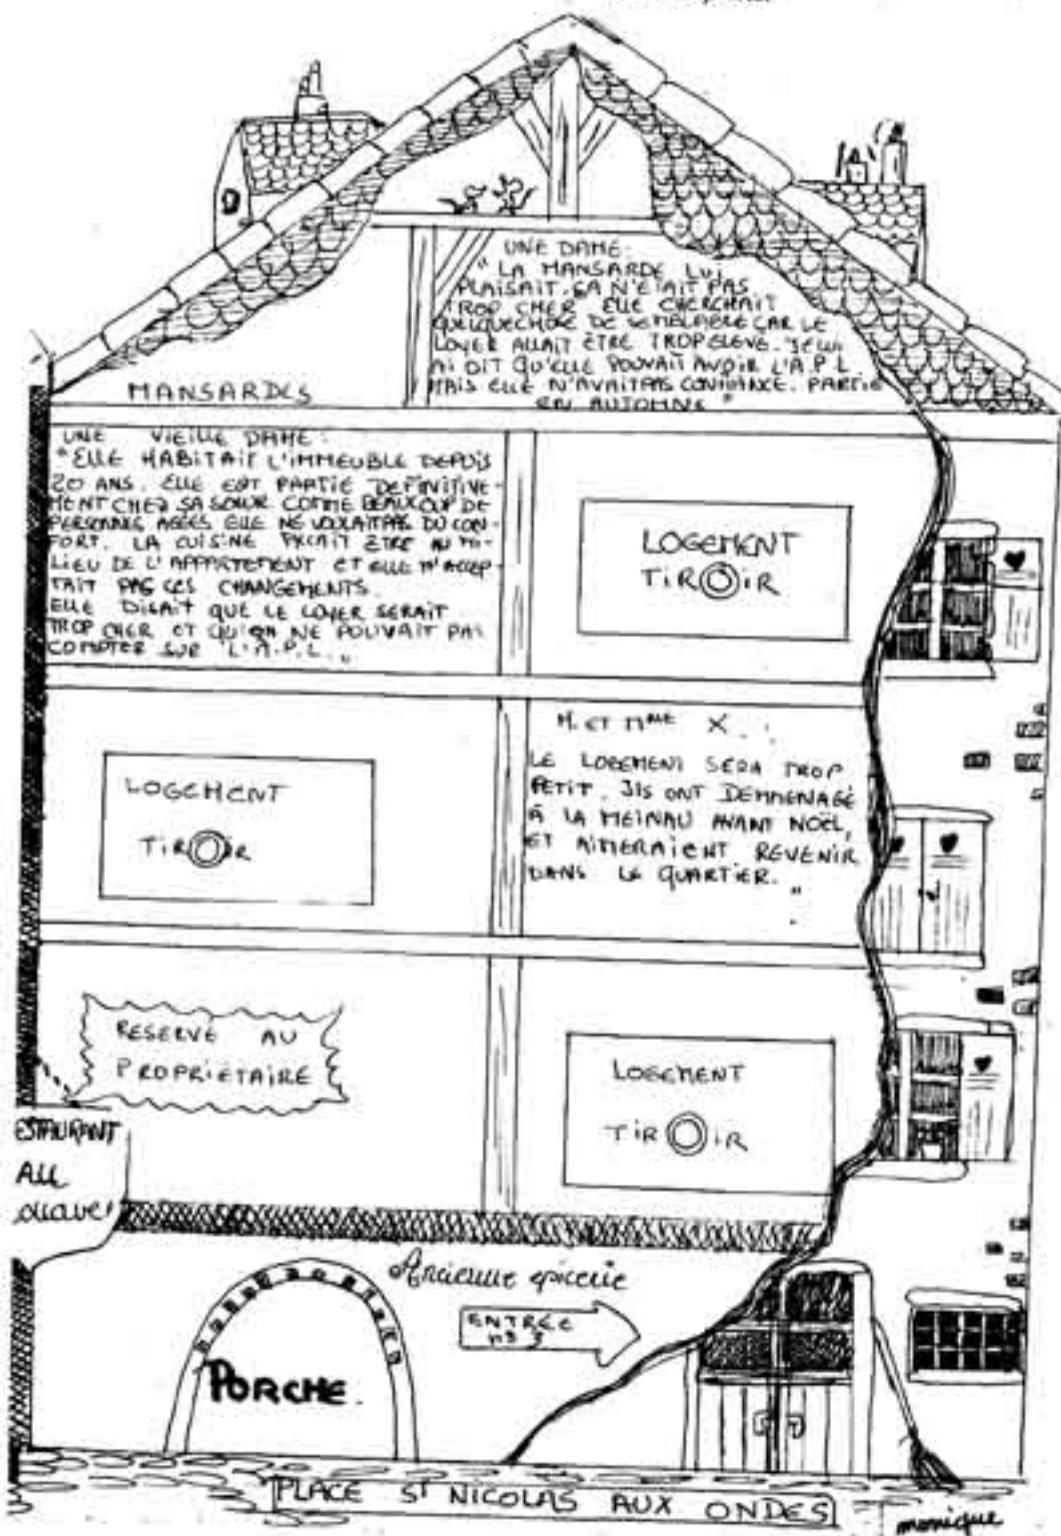 UNE DAME:
"LA MANSARDE LUI
PLAISAIT. ÇA N'ÉTAIT PAS
TROP CHER ELLE CHERCHAIT
QUELQUECHOSE DE SEMBLABLE CAR LE
LOYER ALLAIT ÊTRE TROP ELEVE. JE LUI
AI DIT QU'ELLE POUVAIT AVOIR L'A.P.L
MAIS ELLE N'AVAIT PAS CONFIANCE. PARTIE
EN AUTOMNE"
MANSARDES
UNE VIEILLE DAME:
"ELLE HABITAIT L'IMMEUBLE DEPUIS
20 ANS. ELLE EST PARTIE DEFINITIVE-
MENT CHEZ SA SOEUR COMME BEAUCOUP DE
PERSONNES AGÉES ELLE NE VOULAIT PAS DU CON-
FORT. LA CUISINE DEVAIT ETRE AU MI-
LIEU DE L'APPARTEMENT ET ELLE N'ACCEP
TAIT PAS CES CHANGEMENTS.
ELLE DISAIT QUE LE LOYER SERAIT
TROP CHER ET QU'ON NE POUVAIT PAS
COMPTER SUR L'A.P.L."
LOGEMENT
TIROIR
LOGEMENT
TIROIR
M. ET MME X.:
LE LOGEMENT SERA TROP
PETIT. ILS ONT DEMMENAGÉ
À LA MEINAU AVANT NOËL,
ET AIMERAIENT REVENIR
DANS LE QUARTIER."
RESERVÉ AU
PROPRIÉTAIRE
LOGEMENT
TIROIR
ESTAURANT
AU
Ancienne épicerie
ENTRÉE
N° 3
PORCHE.
PLACE ST NICOLAS AUX ONDES
monique